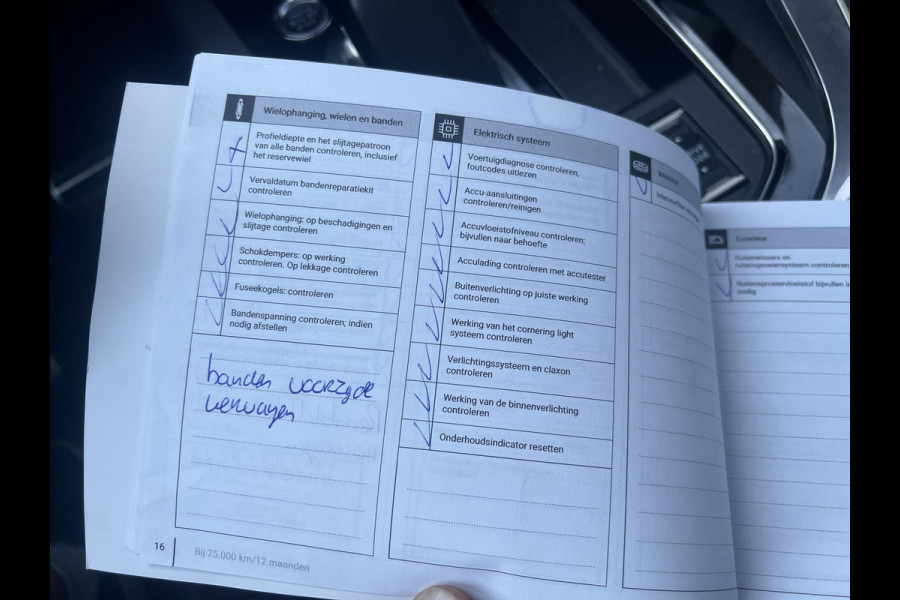 Wielophanging, wielen en banden
Profieldiepte en het slijtagepatroon
van alle banden controleren, inclusief
het reservewiel
Vervaldatum bandenreparatiekit
controleren
Wielophanging: op beschadigingen en
slijtage controleren
Schokdempers: op werking
controleren. Op lekkage controleren
Fuseekogels: controleren
Bandenspanning controleren; indien
nodig afstellen
banden voorzijde
vervangen
16
Bij 25.000 km/12 maanden
Elektrisch systeem
Voertuigdiagnose controleren;
foutcodes uitlezen
Accu-aansluitingen
controleren/reinigen
Accuvloeistofniveau controleren;
bijvullen naar behoefte
Acculading controleren met accutester
Buitenverlichting op juiste werking
controleren
Werking van het cornering light
systeem controleren
Verlichtingssysteem en claxon
controleren
Werking van de binnenverlichting
controleren
Onderhoudsindicator resetten
Interieur
Exterieur
Ruitenwissers en
ruitensproeiersysteem controleren
Ruitensproeiervloeistof bijvullen
nodig